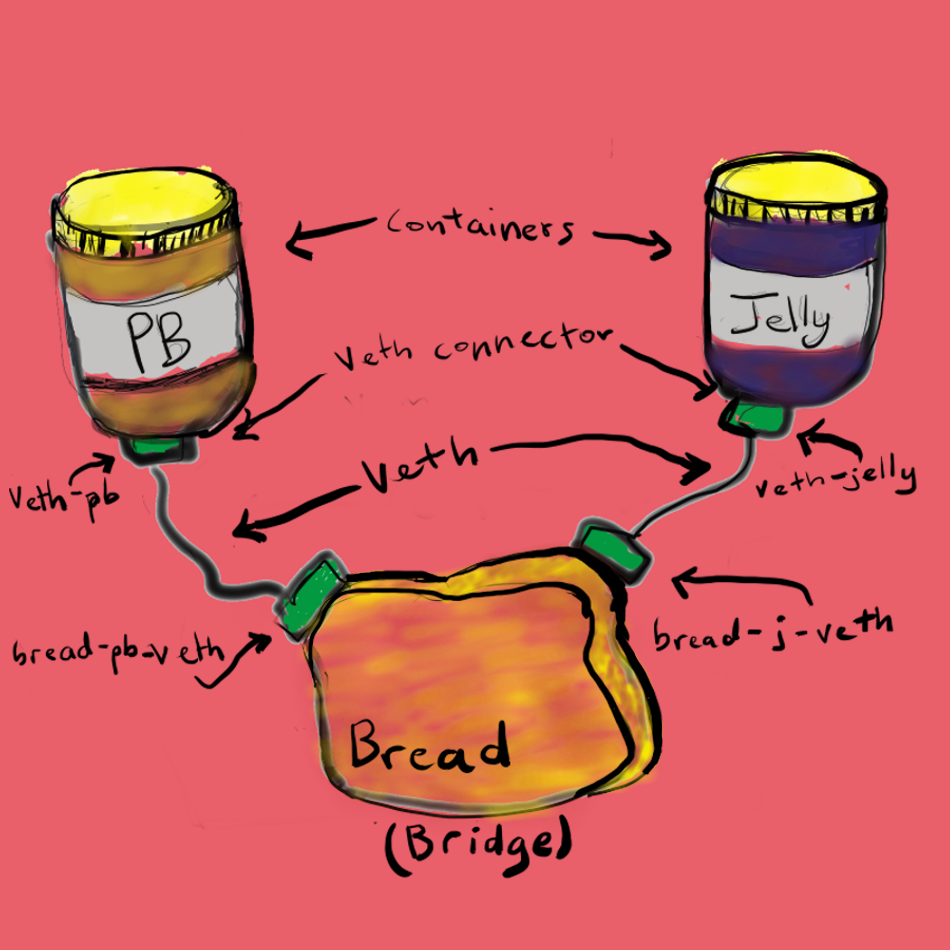 containers
PB
Jelly
veth connector
veth
veth-pb
veth-jelly
bread-pb-veth
bread-j-veth
Bread
(Bridge)